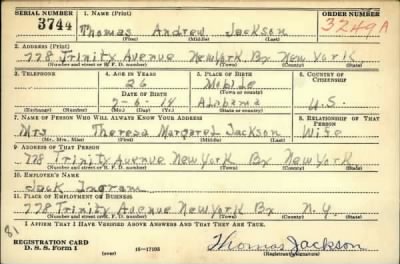 SERIAL NUMBER 1. NAME (Print) ORDER NUMBER
3744 Thomas Andrew Jackson 3249A
(First) (Middle) (Last)
2. ADDRESS (Print)
778 Trinity Avenue New York Bx New York
(Number and street or R. F. D. number) (Town) (County) (State)
3. TELEPHONE 4. AGE IN YEARS 5. PLACE OF BIRTH 6. COUNTRY OF CITIZENSHIP
26 Mobile
DATE OF BIRTH (Town or county)
Alabama U.S.
(Exchange) (Number) (Mo.) (Day) (Yr.) (State or country)
7. NAME OF PERSON WHO WILL ALWAYS KNOW YOUR ADDRESS 8. RELATIONSHIP OF THAT PERSON
Mrs Theresa Margaret Jackson Wife
(Mr., Mrs., Miss) (First) (Middle) (Last)
9. ADDRESS OF THAT PERSON
778 Trinity Avenue New York Bx New York
(Number and street or R. F. D. number) (Town) (County) (State)
10. EMPLOYER'S NAME
Jack Ingram
11. PLACE OF EMPLOYMENT OR BUSINESS
778 Trinity Avenue New York Bx N.Y.
(Number and street or R. F. D. number) (Town) (County) (State)
I AFFIRM THAT I HAVE VERIFIED ABOVE ANSWERS AND THAT THEY ARE TRUE.
REGISTRATION CARD
D. S. S. Form 1 (over) 16—17105 Thomas Jackson
(Registrant's signature)